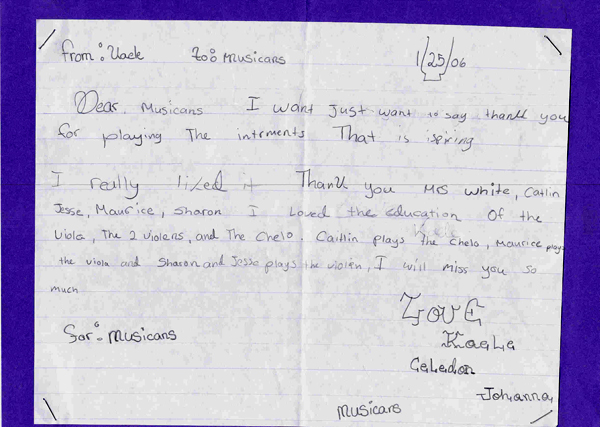 from: Kaele To: Musicans 1/25/06
Dear. Musicans I want Just want to say thank you
for playing The intrments That is ispiring
I really liked it Thank you Mrs White, Catlin
Jesse, Maurice, Sharon I Loved the education Of the
Viola, The 2 Violens, and The Chelo. Caitlin plays The chelo, Maurice plays
the viola and Sharon and Jesse plays the violen, I will miss you so
much
LOVE
Kaele
Celedon
Johanna
for: Musicans
Musicans